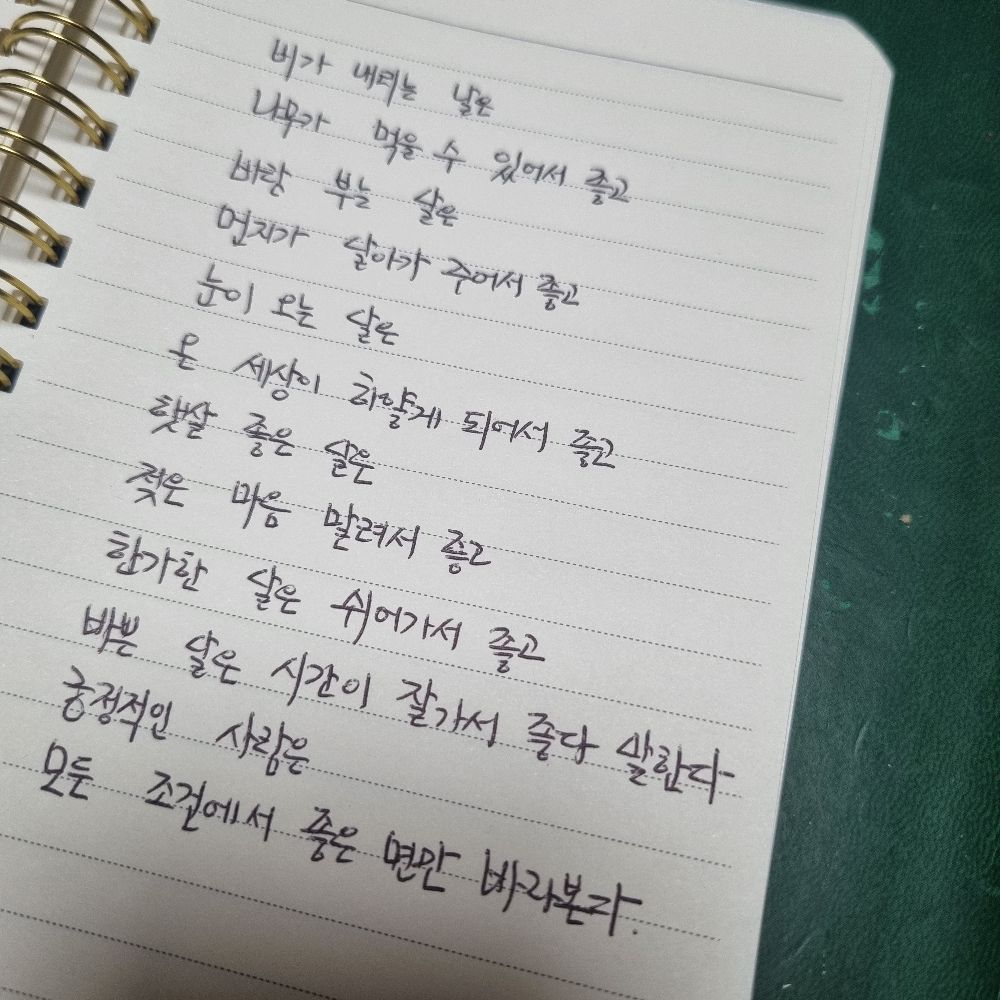 비가 내리는 날은
나무가 먹을 수 있어서 좋고
바람 부는 날은
먼지가 날아가 주어서 좋고
눈이 오는 날은
온 세상이 하얗게 되어서 좋고
햇살 좋은 날은
젖은 마음 말려서 좋고
한가한 날은 쉬어가서 좋고
바쁜 날은 시간이 잘가서 좋다 말한다
긍정적인 사람은
모든 조건에서 좋은 면만 바라본다.